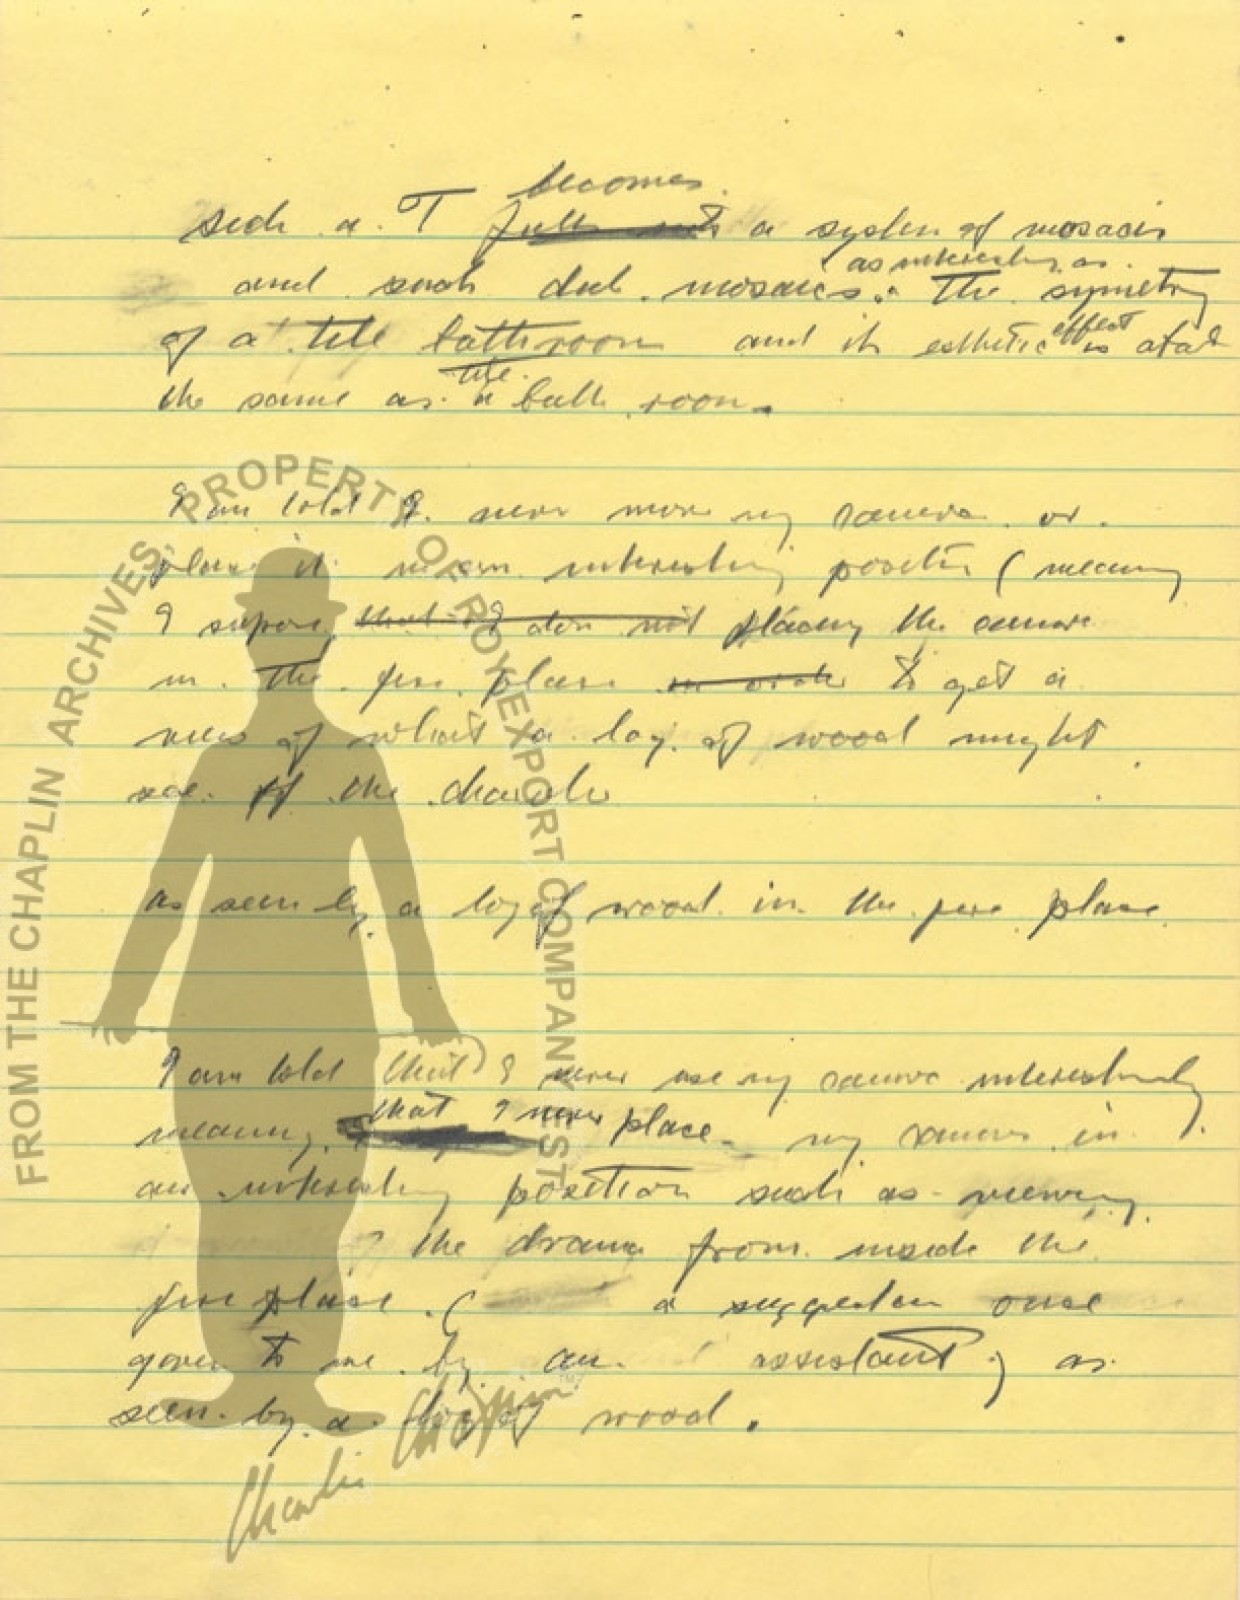 becomes
a system of mosaics
as interesting as
and such dull mosaics. The symetry
of a tile bathroom and its esthetic effect is
tile
the same as a bath room.
I am told I never move my camera or
place it in an interesting position (meaning
I supose that I dont placing the camera
in the fire place in order to get a
view of what a log of wood might
see of the
as seen by a log of wood in the fire place
I am told that I never use my camera interestingly
meaning that I never place my camera in
an interesting position such as viewing
the drama from inside the
fire place ( a suggestion once
given to me by an assistant ) as
seen by a log of wood.
FROM THE CHAPLIN ARCHIVES, PROPERTY OF ROY EXPORT COMPANY EST
Charlie Chaplin